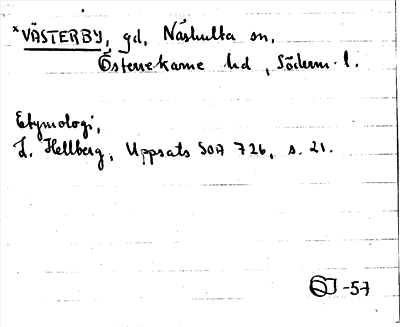 *VÄSTERBY, gd, Näshulta sn,
Österrekarne hd, Söderm. l.
Etymologi,
L. Hellberg, Uppsats SOA 726, s. 21.
-57